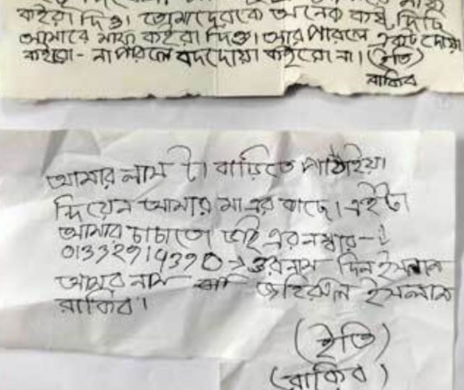 কইরা দিও। তোমাদেরকে অনেক কষ্ট দিছি
আমারে মাফ কইরা দিও। আর পারলে একটু দোয়া
কইরো - না পারলে বদদোয়া কইরো না। (ইতি)
রাকিব
আমার লাস টা বাড়িতে পাঠাইয়া
দিয়েন আমার মা এর কাছে। এইটা
আমার চাচাতো ভাই এর নম্বার -
01332914390 ওর নাম দিন ইসলাম
আমর নাম জহিরুল ইসলাম
রাকিব।
(ইতি)
(রাকিব)